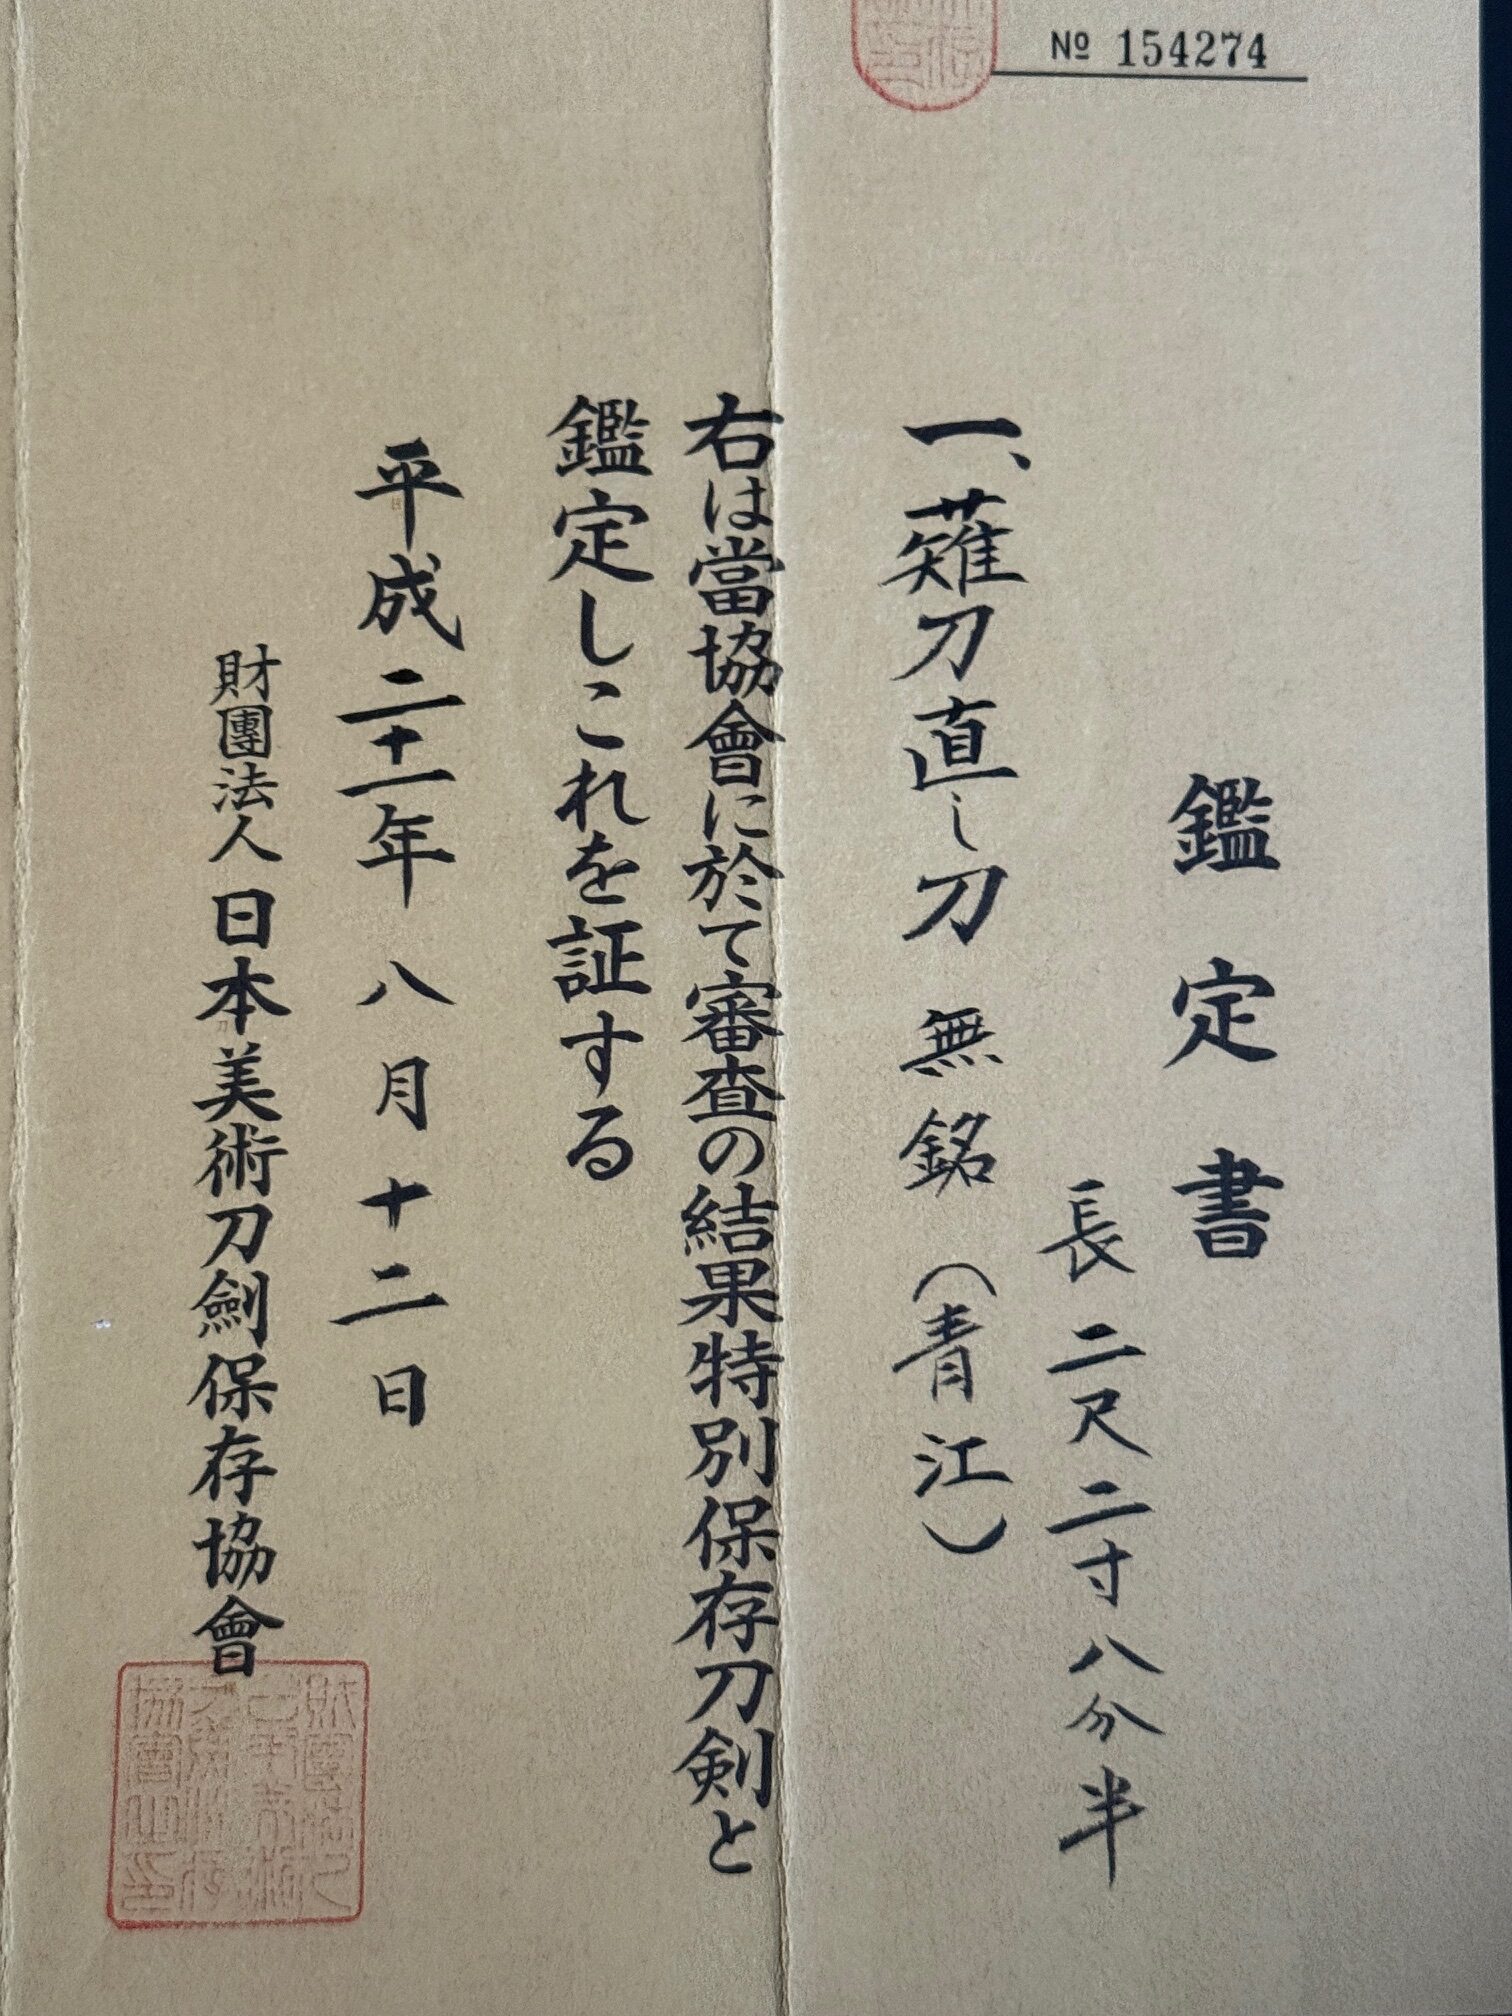 № 154274
鑑定書
長 二尺二寸八分半
一、薙刀直し刀 無銘（青江）
右は當協會に於て審査の結果特別保存刀剣と
鑑定しこれを証する
平成二十一年八月十二日
財團法人日本美術刀劍保存協會